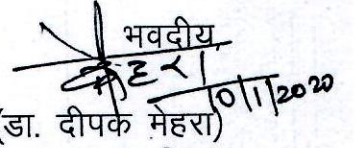 भवदीय,
10/1/2020
(डा. दीपक मेहरा)